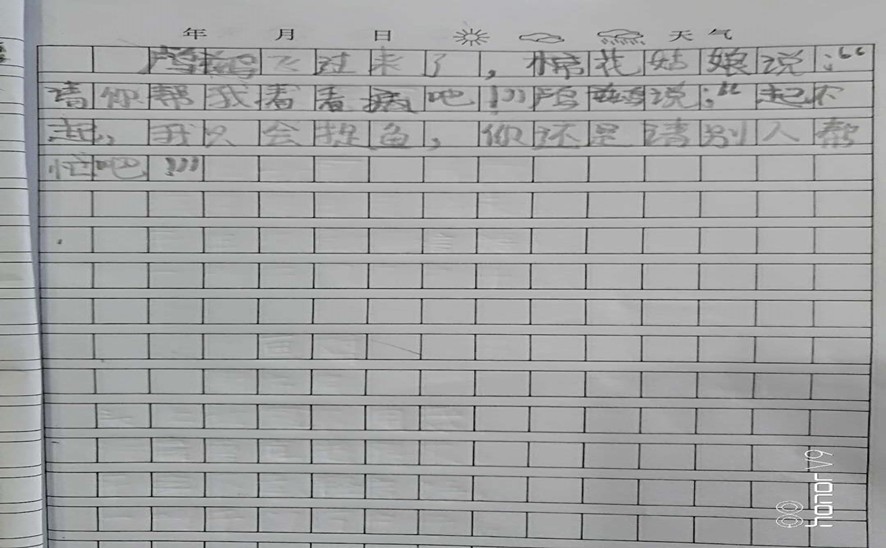 年 月 日 天气
鸬鹚飞过来了，棉花姑娘说：“
请你帮我看看病吧！”鸬鹚说：“起不
起，我只会捉鱼，你还是请别人帮
忙吧！”
honor V9